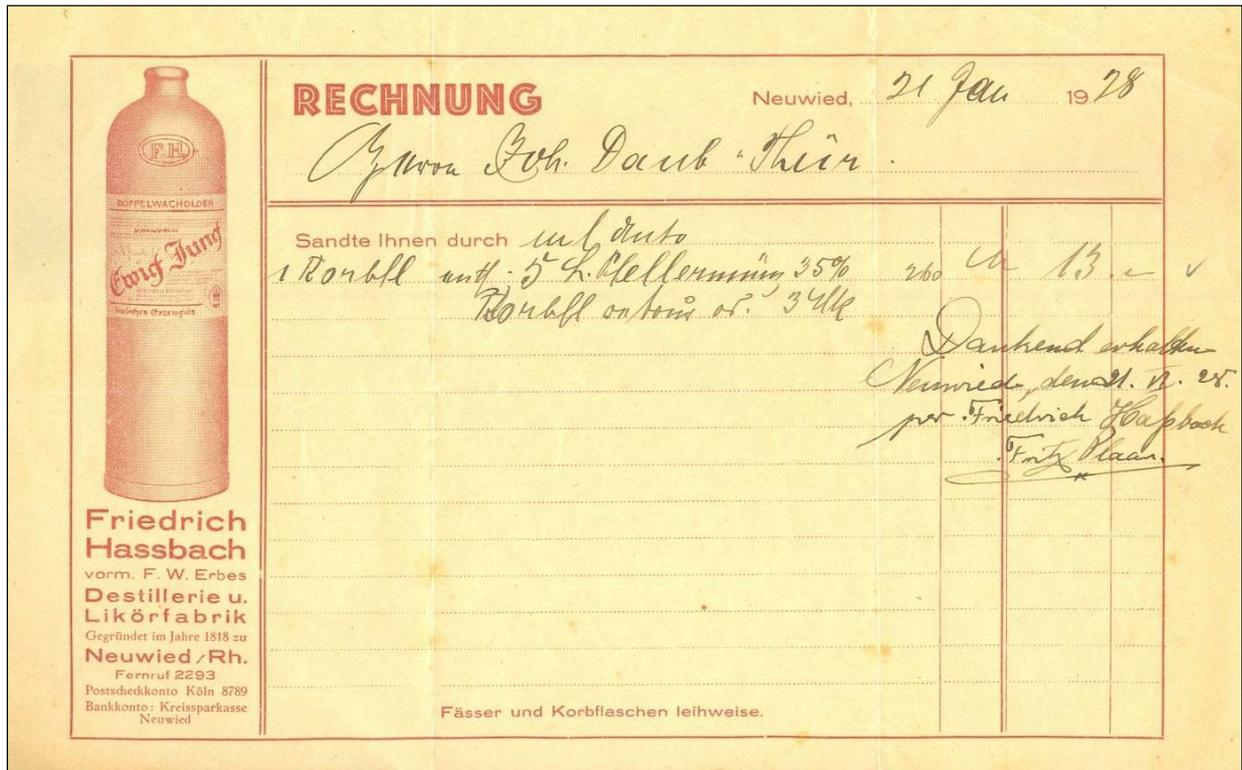 F.H.
DOPPELWACHOLDER
Ewig Jung
Deutsches Erzeugnis
Friedrich
Hassbach
vorm. F. W. Erbes
Destillerie u.
Likörfabrik
Gegründet im Jahre 1818 zu
Neuwied/Rh.
Fernruf 2293
Postscheckkonto Köln 8789
Bankkonto: Kreissparkasse
Neuwied
RECHNUNG
Neuwied, 21 Jan 1928
Herrn Joh. Daub Thür.
Sandte Ihnen durch m/ Auto
1 Korbfl enth. 5 L. Pfefferminz 35% 260 M 13.–
Korbfl retour od. 3 Mk
Dankend erhalten
Neuwied, den 21. VI. 28.
per Friedrich Haßbach
Fritz
Fässer und Korbflaschen leihweise.